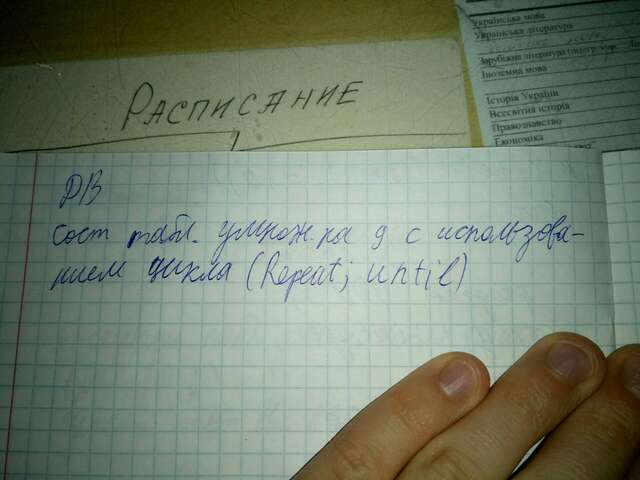 Українська мова
Українська література
Зарубіжна література
Іноземна мова
Історія України
Всесвітня історія
Правознавство
Економіка
РАСПИСАНИЕ
сост табл. умнож. на 9 с использова-
нием цикла (Repeat; until)